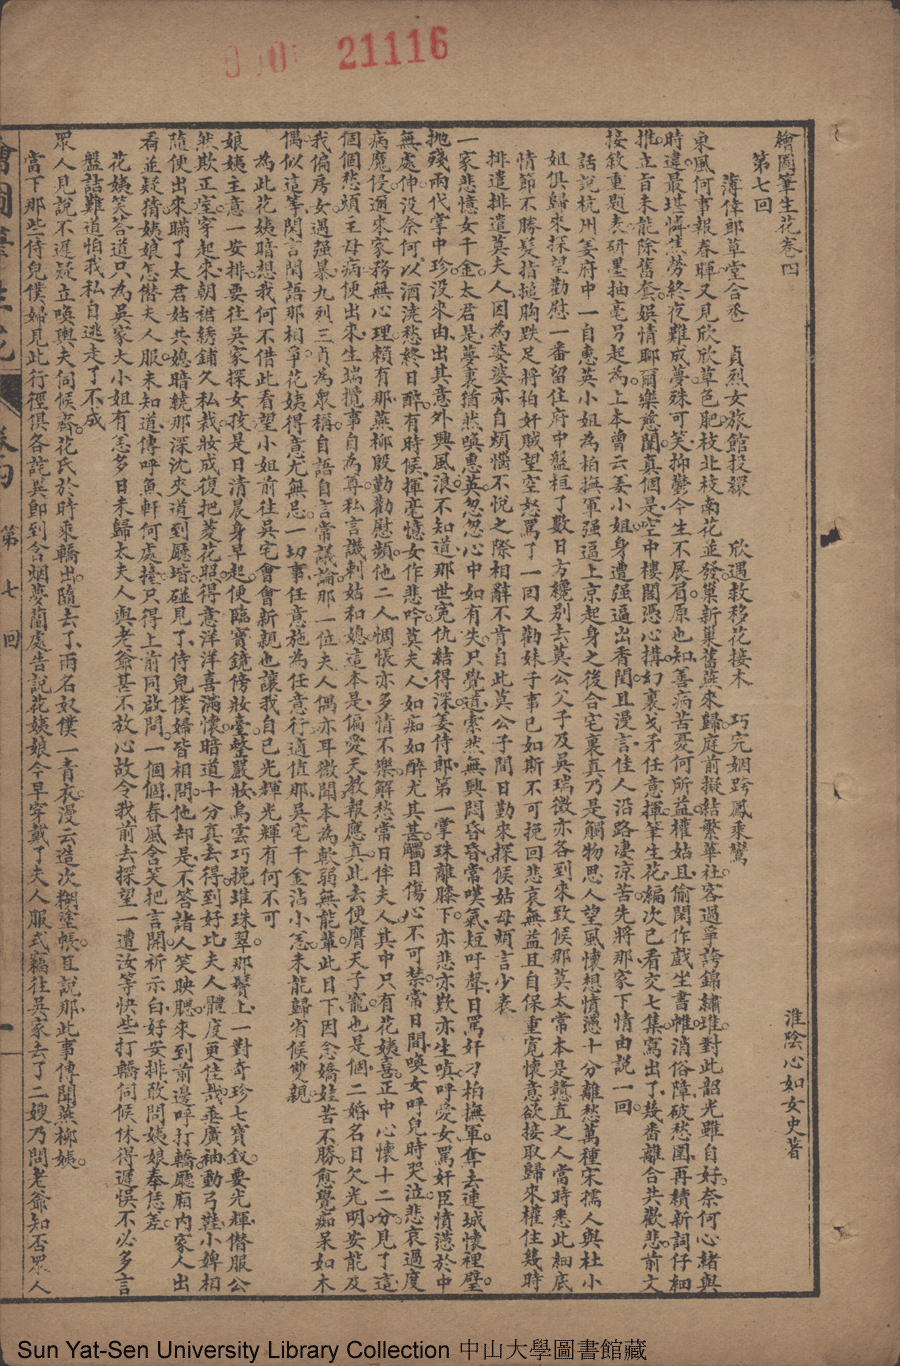 21116
繪圖筆生花卷四
淮陰心如女史著
第七回
薄倖郎草堂合巹 貞烈女旅館投繯 欣遇救移花接木 巧完姻跨鳳乘鸞
東風何事報春暉又見欣欣草色肥枝北枝南花並發巢新巢舊燕來歸庭前擬結繁華社客過爭誇錦繡堆對此韶光雖自好奈何心緒與
時違最堪憐焦勞終夜難成夢殊可笑抑鬱今生不展眉原也知善病苦憂何所益權姑且偷閑作戲坐書帷消俗障破愁圍再續新詞仔細
推立旨未能除舊套娛情聊爾樂慈闈真個是空中樓閣憑心搆幻裏戈矛任意揮筆生花編次已看交七集寫出了幾番離合共歡悲前文
接敘重題表研墨抽毫另起為上本曾云姜小姐身遭强逼出香閨且漫言佳人沿路凄涼苦先將那家下情由說一回
話說杭州姜府中一自惠英小姐為柏撫軍强逼上京起身之後合宅裏真乃是觸物思人望風懷想情憑十分離愁萬種宋孺人與杜小
姐俱歸來探望勸慰一番留住府中盤桓了數日方纔別去莫公父子及吳瑞徵亦各到來致候那莫太常本是戇直之人當時悉此細底
情節不勝髮指搥胸跌足將柏奸賊望空怒罵了一回又勸妹子事已如斯不可挽回悲哀無益且自保重寬懷意欲接取歸來權住幾時
排遣排遣莫夫人因為婆婆亦自煩惱不悅之際相辭不肯自此莫公子間日勤來探候姑母煩言少表
一家悲憶女千金太君是夢裏猶然喚惠英忽忽心中如有失只覺道索然無興悶昏昏常嘆氣短吁聲日罵奸刁柏撫軍奪去連城懷裡璧
抛殘兩代掌中珍没來由出其意外興風浪不知道那世冤仇結得深姜侍郎第一掌珠離膝下亦悲亦歎亦生嗔呼愛女罵奸臣憤懣於中
無處伸没奈何以酒澆愁終日醉有時候揮毫憶女作悲吟莫夫人如痴如醉尤其甚觸目傷心不可禁常日間喚女呼兒時哭泣悲哀過度
病魔侵邇來家務無心理賴有那燕柳殷勤勸慰頻他二人惆悵亦多情不樂解愁常日伴夫人其中只有花姨喜正中心懷十二分見了這
個個愁煩王母病便出來生端攬事自為尊私言譏刺姑和媳這本是偏愛天教報應真此去便膺天子寵也是個二婚名目欠光明安能及
我偏房女遇强暴九列三貞為衆稱自語自言常議論那一位夫人偶亦耳微聞本為軟弱無能輩此日下因念嬌娃苦不勝愈覺痴呆如木
偶似這等閑言閑語那相爭花姨得意尤無忌一切事任意施為任意行適值那吳宅千金沾小恙未能歸省候雙親
為此花姨暗想我何不借此看望小姐前往吳宅會會新親也讓我自己光輝光輝有何不可
娘姨主意一安排要往吳家探女孩是日清晨身早起便臨寶鏡傍妝臺整嚴妝烏雲巧挽堆珠翠那鬢上一對奇珍七寶釵要光輝僭服公
然欺正室穿起來朝裙綉鋪久私裁妝成復把菱花照得意洋洋喜滿懷暗道十分真去得到好比夫人體度更佳哉垂廣袖動弓鞋小婢相
隨便出來瞞了太君姑共媳暗繞那深沈夾道到廳堦碰見了侍兒僕婦皆相問他却是不答諸人笑映腮來到前邊呼打轎廳廂內家人出
看並疑猜姨娘怎僭夫人服未知道傳呼魚軒何處擡只得上前同啟問一個個春風含笑把言開祈示白好安排敢問姨娘奉恁差
花姨笑答道只為吳家大小姐有恙多日未歸太夫人與老爺甚不放心故令我前去探望一遭汝等快些打轎伺候休得遲悞不必多言
盤詰難道怕我私自逃走了不成
衆人見說不遲疑立喚輿夫伺候齊花氏於時乘轎出隨去了兩名奴僕一青衣漫云造次糊塗帳且說那此事傳聞燕柳姨
當下那些侍兒僕婦見此行徑俱各詫異即到含烟夢蘭處告說花姨娘今早穿戴了夫人服式竊往吳家去了二嫂乃問老爺知否眾人
卷四
第七回
一
Sun Yat-Sen University Library Collection 中山大學圖書館藏